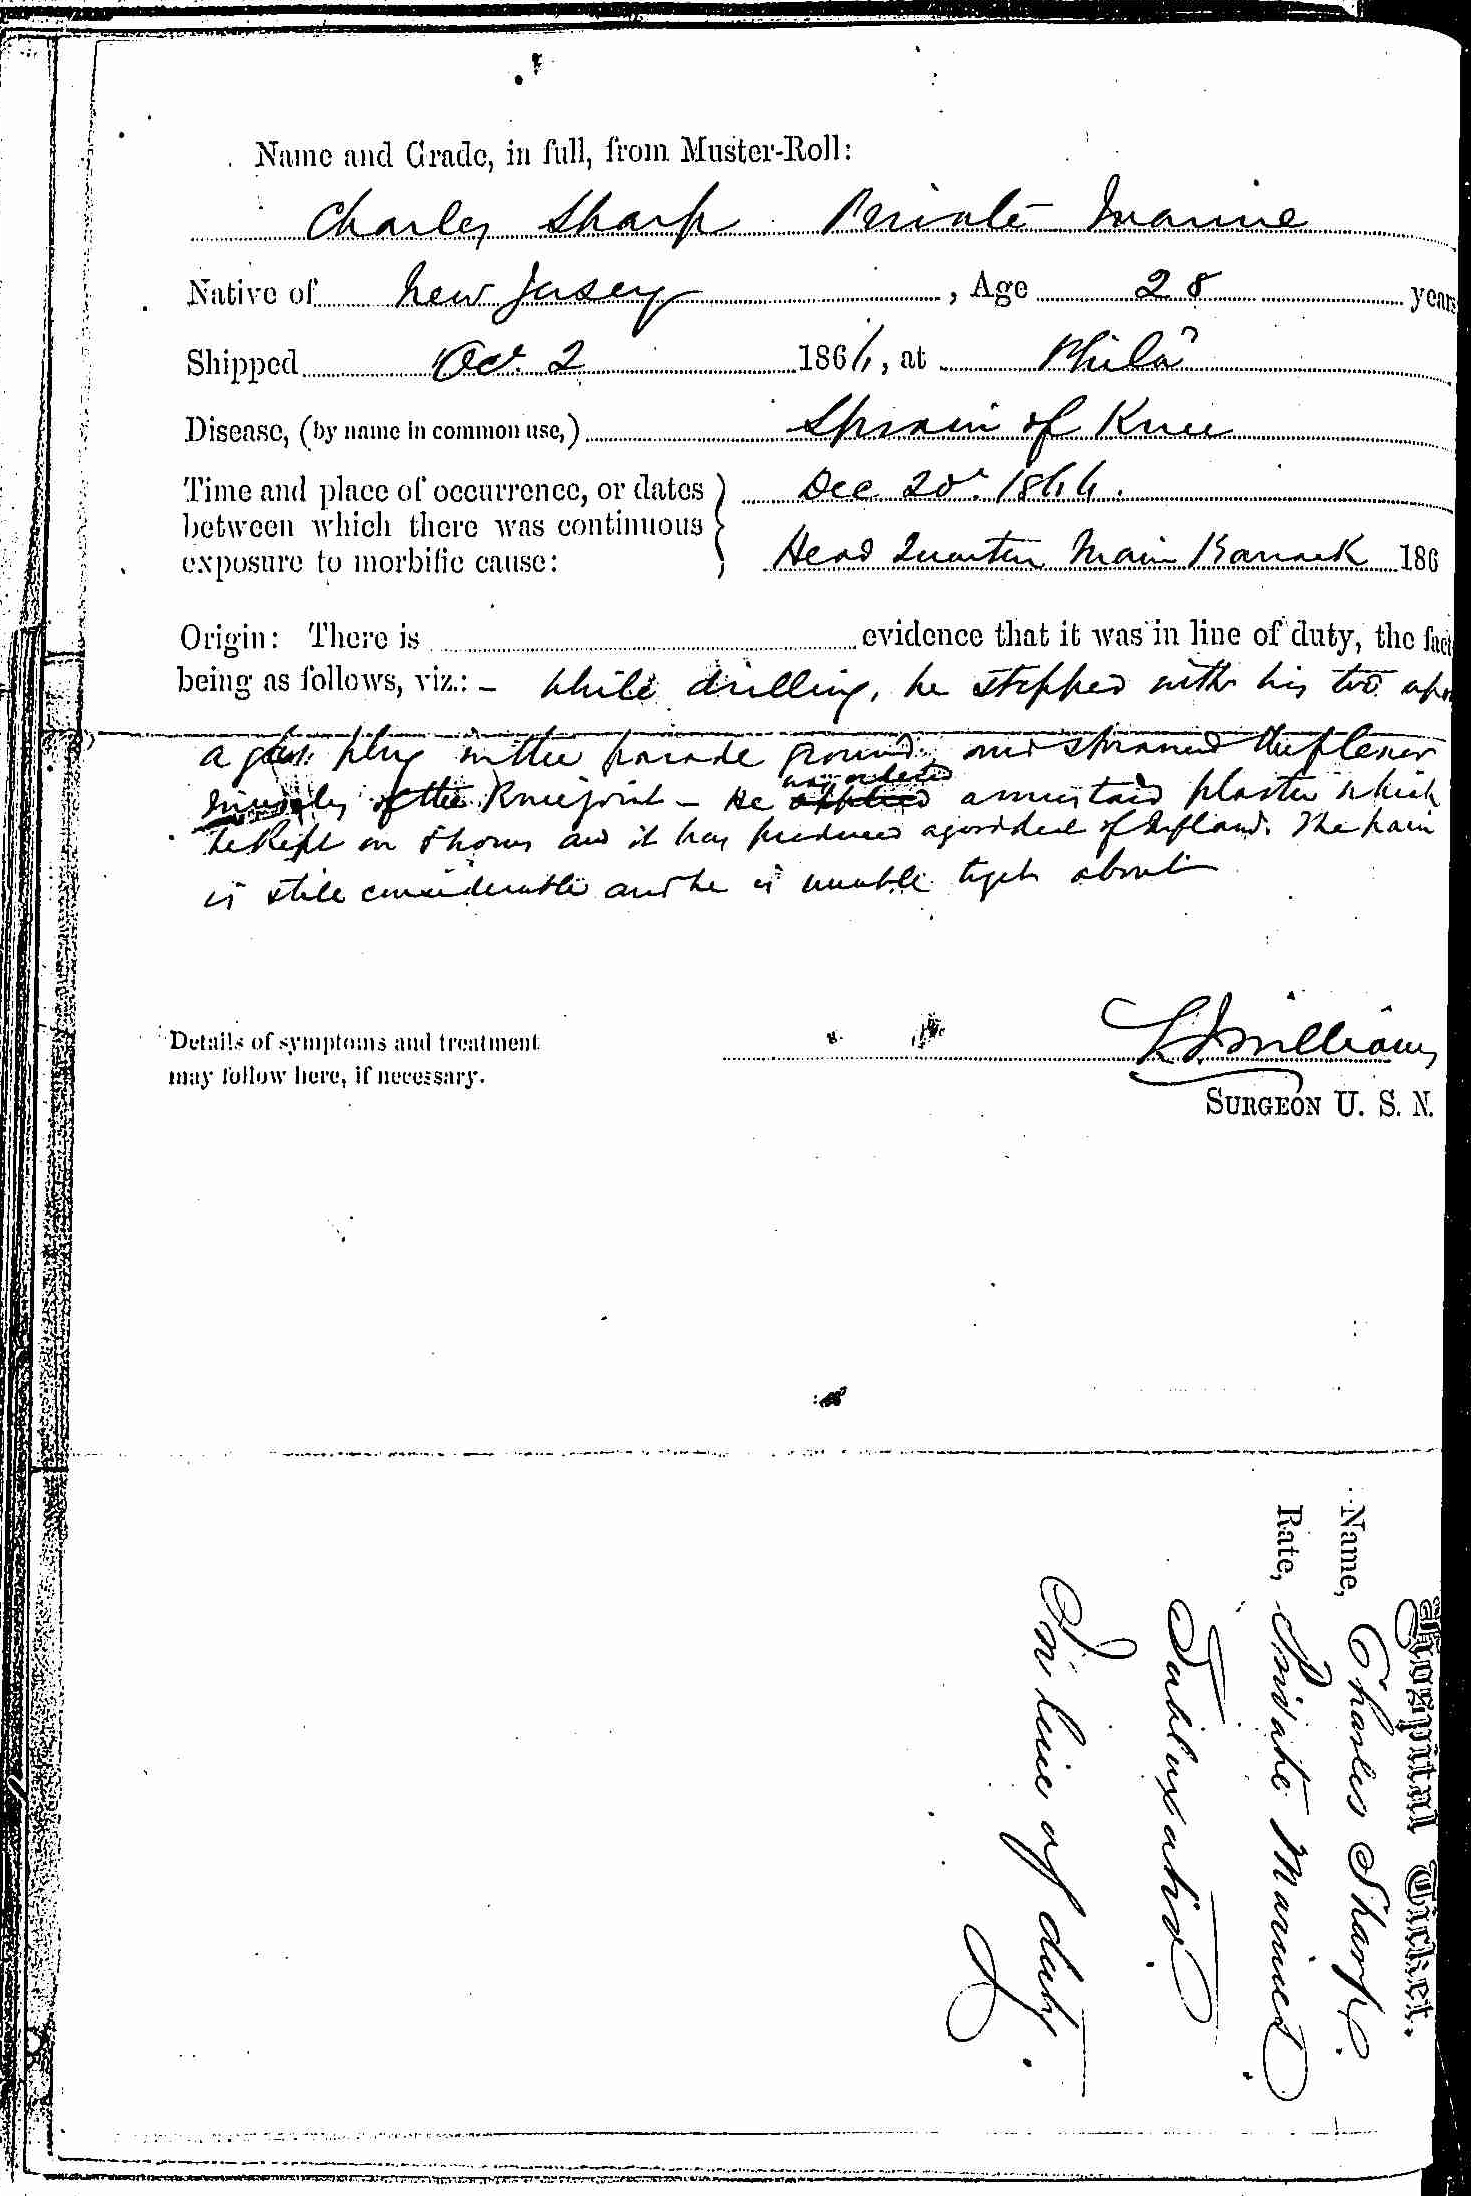 Name and Grade, in full, from Muster-Roll:
Charles Sharp Private Marine
Native of New Jersey, Age 28 years
Shipped Oct. 2 1866, at Phila
Disease, (by name in common use,) Sprain of Knee
Time and place of occurrence, or dates
between which there was continuous
exposure to morbific cause:
Dec 20. 1866.
Head Quarters Marine Barrack 186
Origin: There is evidence that it was in line of duty, the fact
being as follows, viz.: - While drilling, he stepped with his toe upon
a plug in the parade ground and strained the flexor
muscles of the Knee joint - He was ordered a mustard plaster which
he kept on 8 hours and it has produced a good deal of Inflam. The pain
is still considerable and he is unable to get about
Details of symptoms and treatment
may follow here, if necessary.
Williams
SURGEON U. S. N.
Hospital Ticket.
Name, Charles Sharp.
Rate, Private Marines
Subluxatio
In line of duty.